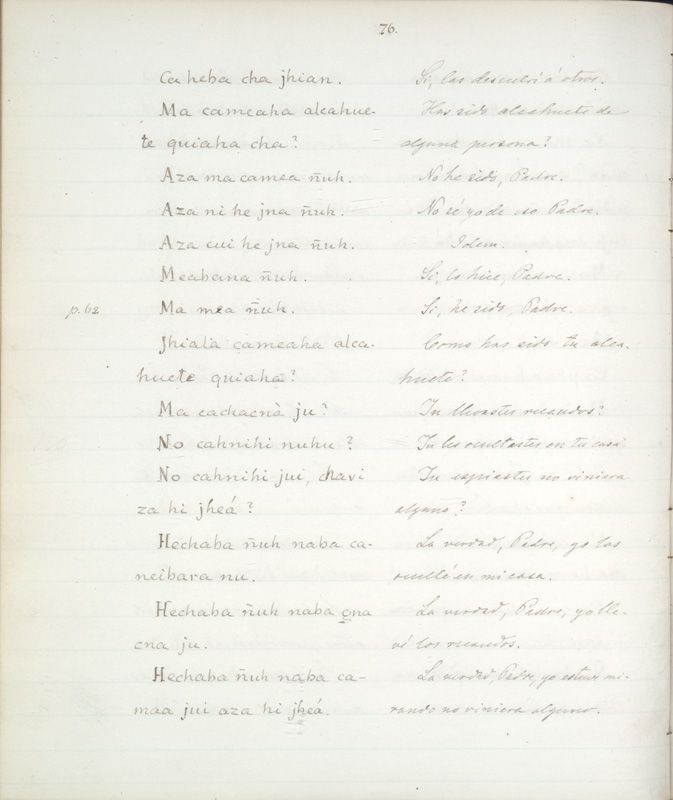 76.
Ca heba cha jhian. Si, las descubrí á otros.
Ma cameaha alcahue- Has sido alcahuete de
te quiaha cha? alguna persona?
Aza ma camea ñuh. No he sido, Padre.
Aza ni he jna ñuh. No sé yo de eso Padre.
Aza cui he jna ñuh. Idem.
Meabana ñuh. Si, lo hice, Padre.
p. 62 Ma mea ñuh. Si, he sido, Padre.
Jhiala cameaha alca- Como has sido tu alca-
huete quiaha? huete?
Ma cachacnà ju? Tu llevastes recaudos?
No cahnihi nuhu? Tu les ocultastes en tu casa
No cahnihi jui, chavi Tu espiastes no viniera
za hi jheá? alguno?
Hechaba ñuh naba ca- La verdad, Padre, yo los
neibara nu. oculté en mi casa.
Hechaba ñuh naba cna La verdad, Padre, yo lle-
cna ju. vé los recaudos.
Hechaba ñuh naba ca- La verdad, Padre, yo estuve mi-
maa jui aza hi jheá. rando no viniera alguno.